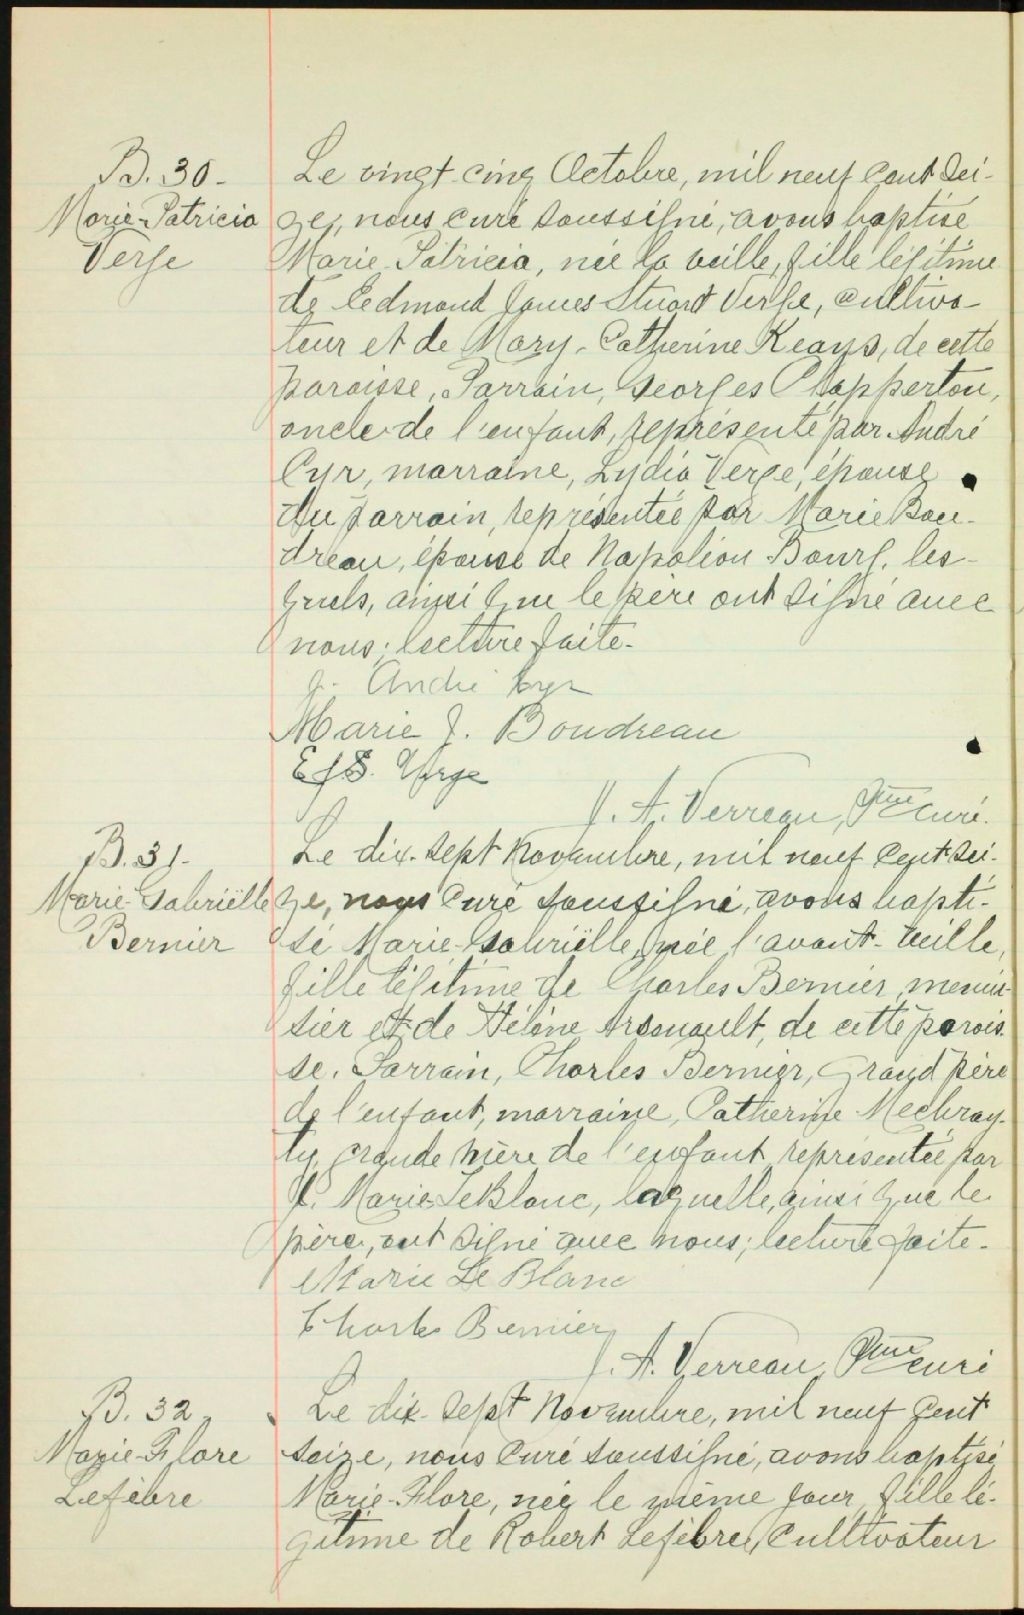 B. 30 -
Marie-Patricia
Verge
Le vingt-cinq Octobre, mil neuf cent sei-
ze, nous curé soussigné, avons baptisé
Marie-Patricia, née la veille, fille légitime
de Edmond James Stuart Verge, cultiva-
teur et de Mary-Catherine Keays, de cette
paroisse, Parrain, Georges Clapperton,
oncle de l'enfant, représenté par André
Cyr, marraine, Lydia Verge, épouse
du parrain, représentée par Marie Bou-
dreau, épouse de Napoléon Bourg, les-
quels, ainsi que le père ont signé avec
nous; lecture faite.
J. André Cyr
Marie J. Boudreau
E J S. Verge
J. A. Verreau, Ptre curé.
B. 31-
Marie-Gabriëlle
Bernier
Le dix-sept Novembre, mil neuf cent sei-
ze, nous curé soussigné, avons bapti-
sé Marie-Gabriëlle, née l'avant-veille,
fille légitime de Charles Bernier, menui-
sier et de Hélène Arsenault, de cette parois-
se. Parrain, Charles Bernier, Grand père
de l'enfant, marraine, Catherine
grande mère de l'enfant représentée par
Marie LeBlanc, laquelle, ainsi que le
père, ont signé avec nous; lecture faite.
Marie Le Blanc
Charles Bernier
J. A. Verreau, Ptre curé
B. 32
Marie-Flore
Lefèbre
Le dix-sept Novembre, mil neuf cent
seize, nous curé soussigné, avons baptisé
Marie-Flore, née le même jour, fille lé-
gitime de Robert Lefèbre, cultivateur